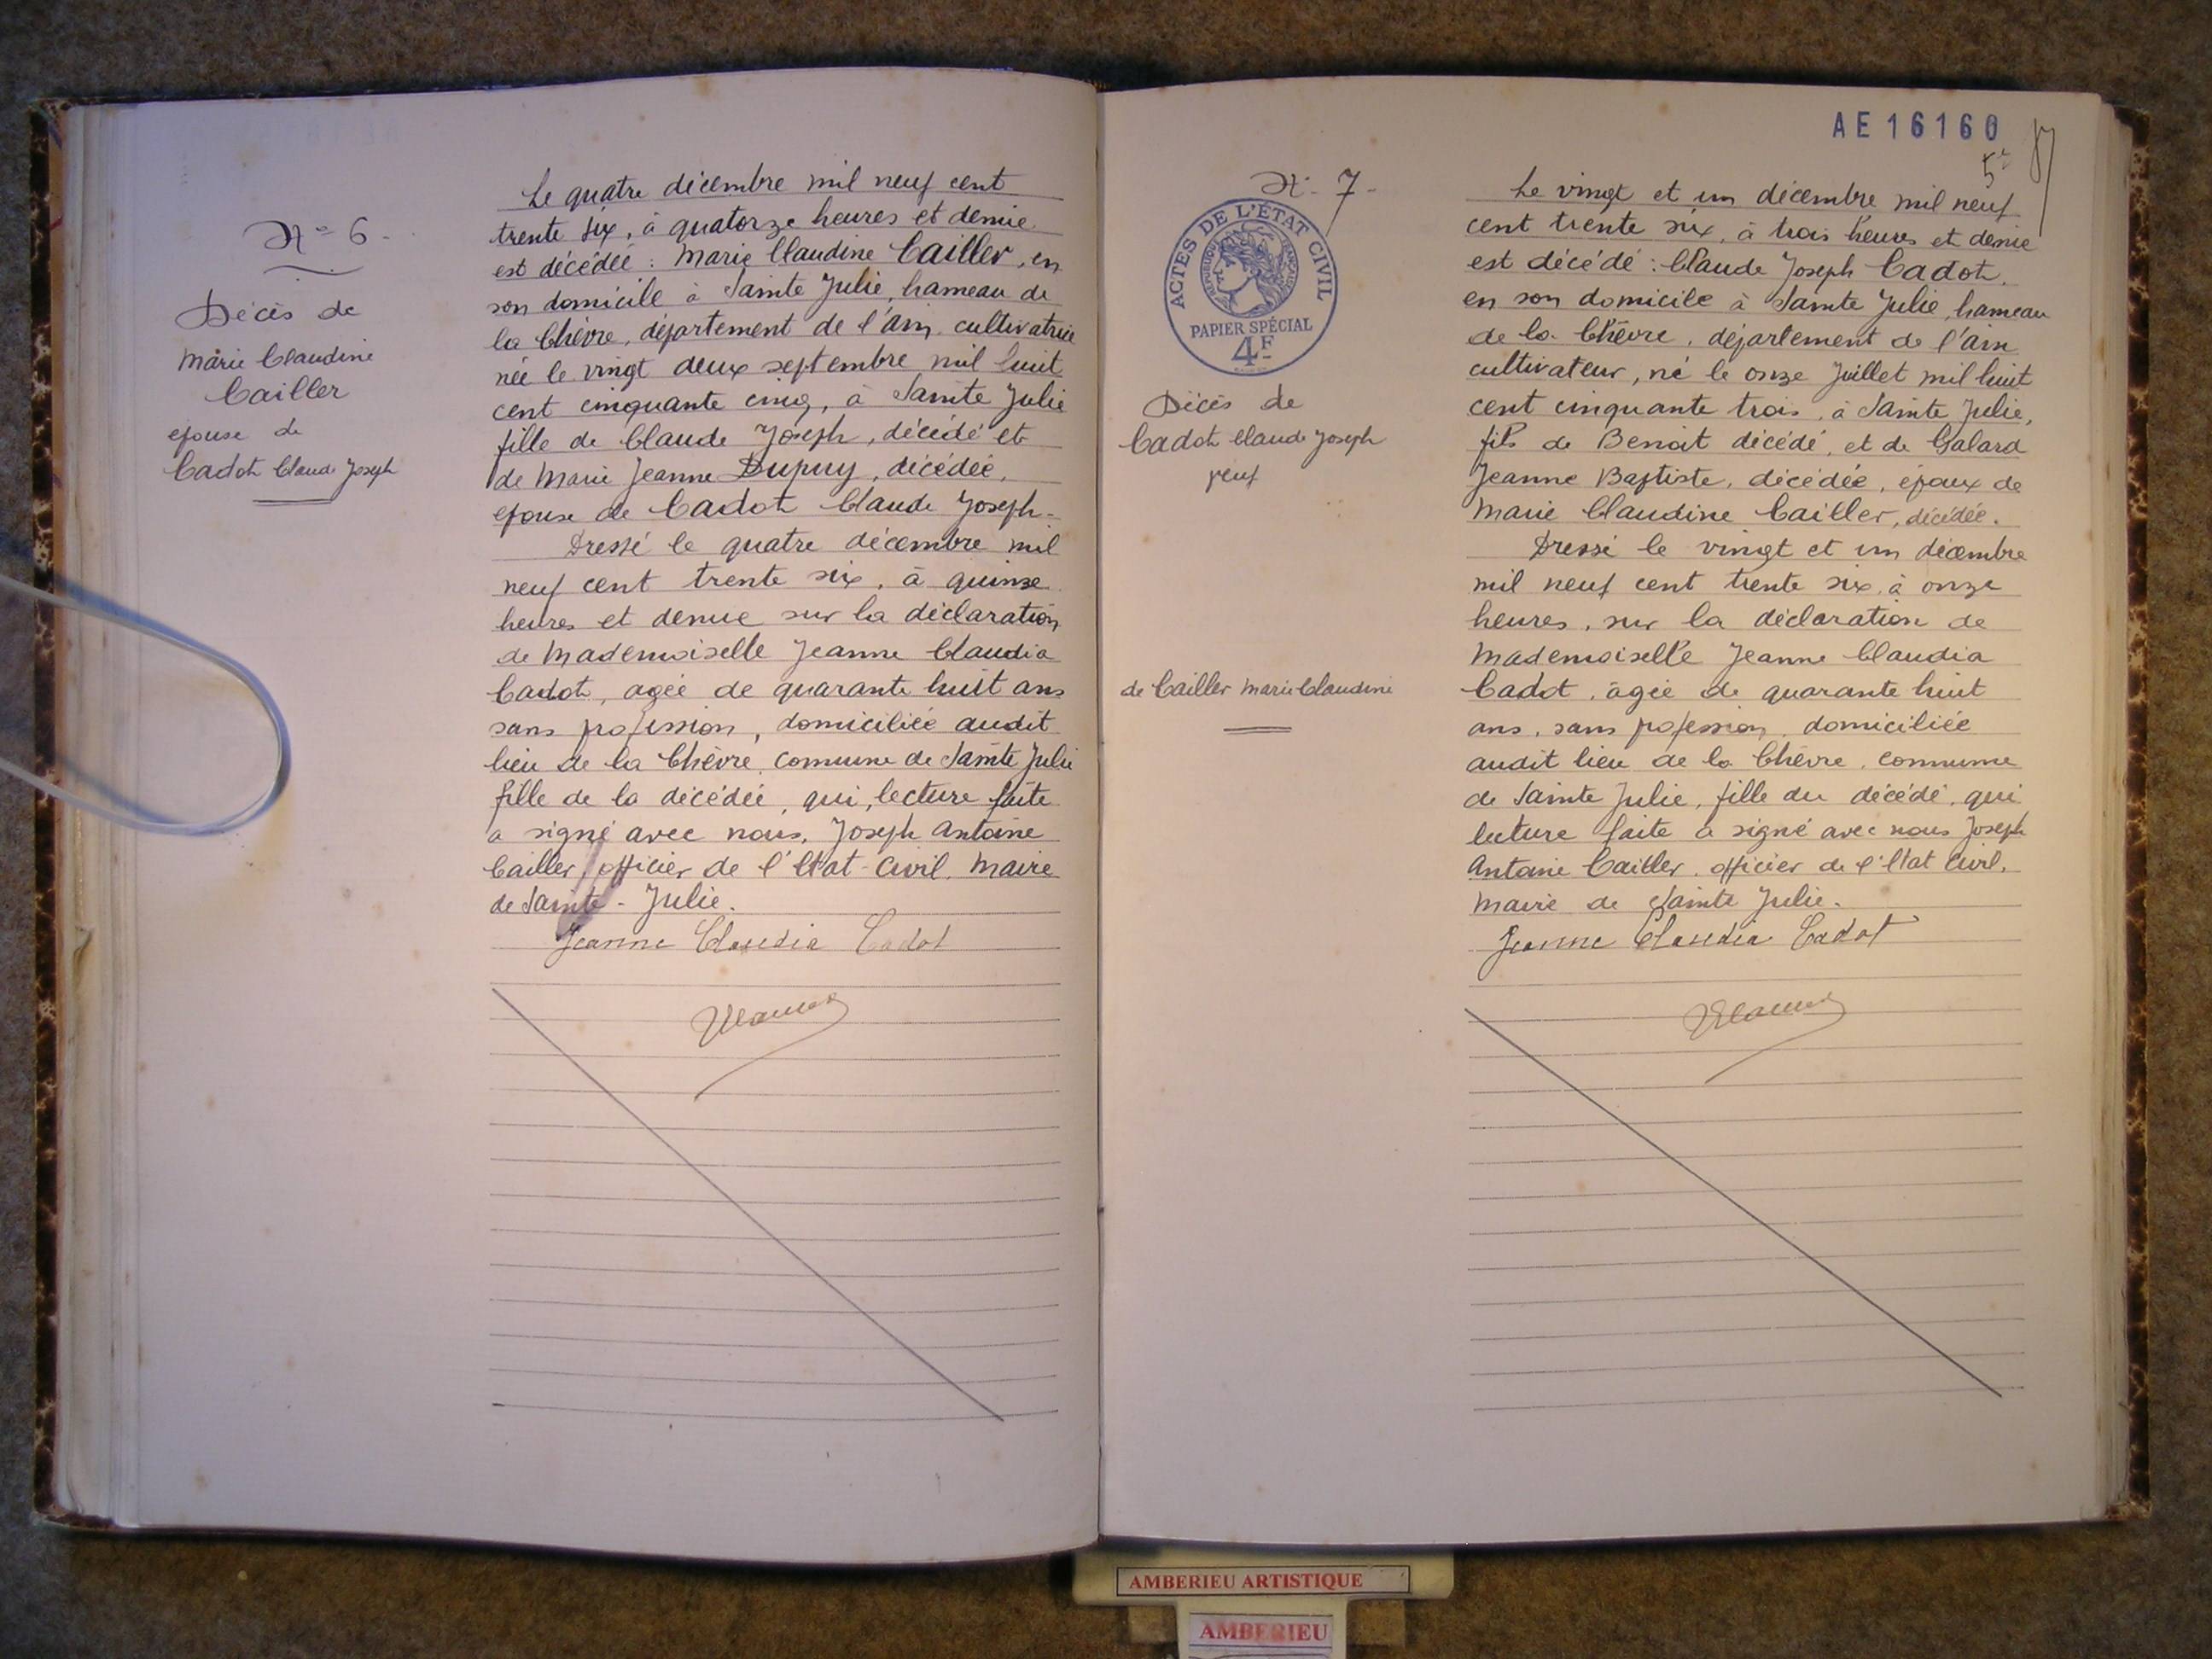 N° 6 -
Décès de
Marie Claudine
Cailler
épouse de
Cadot Claude Joseph
Le quatre décembre mil neuf cent
trente six, à quatorze heures et demie
est décédée : Marie Claudine Cailler, en
son domicile à Sainte Julie, hameau de
la Chèvre, département de l'Ain, cultivatrice
née le vingt deux septembre mil huit
cent cinquante cinq, à Sainte Julie
fille de Claude Joseph, décédé et
de Marie Jeanne Dupuy, décédée,
épouse de Cadot Claude Joseph -
Dressé le quatre décembre mil
neuf cent trente six, à quinze
heures et demie sur la déclaration
de Mademoiselle Jeanne Claudia
Cadot, agée de quarante huit ans
sans profession, domiciliée audit
lieu de la Chèvre, commune de Sainte Julie
fille de la décédée, qui, lecture faite
a signé avec nous, Joseph Antoine
Cailler, officier de l'Etat-Civil, Maire
de Sainte-Julie.
Jeanne Claudia Cadot
AE16160
N° 7 -
ACTES DE L'ÉTAT CIVIL
RÉPUBLIQUE FRANÇAISE
PAPIER SPÉCIAL
4F
Décès de
Cadot Claude Joseph
veuf
de Cailler Marie Claudine
Le vingt et un décembre mil neuf
cent trente six, à trois heures et demie
est décédé : Claude Joseph Cadot,
en son domicile à Sainte Julie, hameau
de la Chèvre, département de l'Ain
cultivateur, né le onze Juillet mil huit
cent cinquante trois, à Sainte Julie,
fils de Benoit décédé, et de Galard
Jeanne Baptiste, décédée, époux de
Marie Claudine Cailler, décédée.
Dressé le vingt et un décembre
mil neuf cent trente six, à onze
heures, sur la déclaration de
Mademoiselle Jeanne Claudia
Cadot, âgée de quarante huit
ans, sans profession, domiciliée
audit lieu de la Chèvre, commune
de Sainte Julie, fille du décédé, qui
lecture faite a signé avec nous Joseph
Antoine Cailler, officier de l'Etat Civil,
Maire de Sainte Julie.
Jeanne Claudia Cadot
AMBERIEU ARTISTIQUE
AMBERIEU